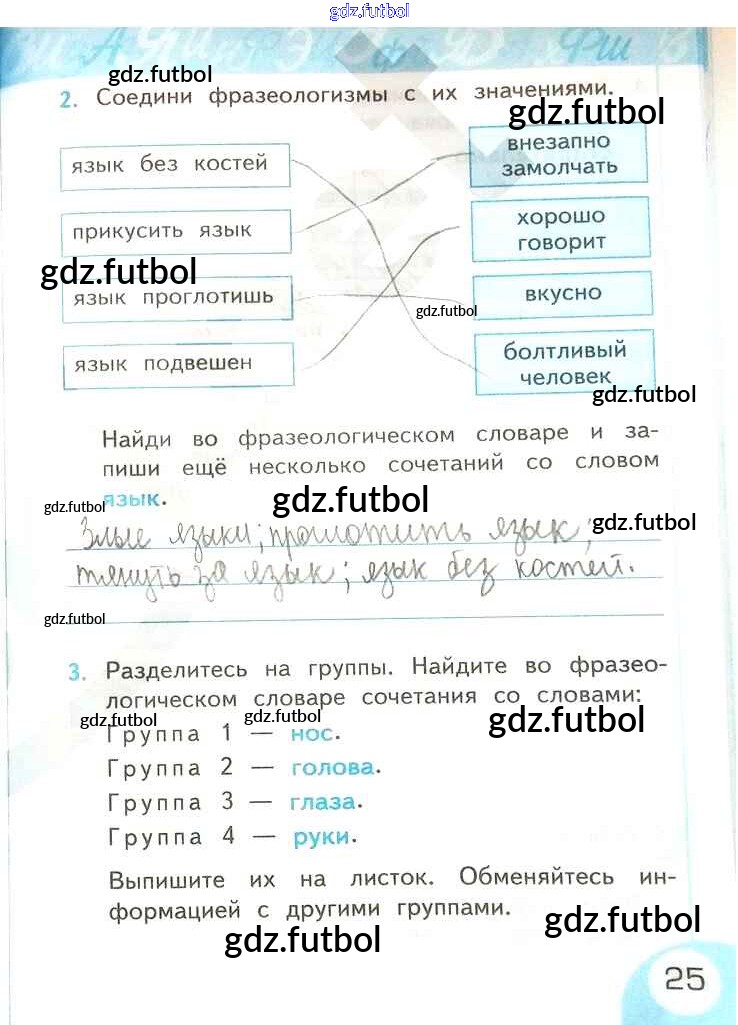 gdz.futbol
gdz.futbol
2. Соедини фразеологизмы с их значениями.
gdz.futbol
язык без костей
внезапно
замолчать
прикусить язык
хорошо
говорит
gdz.futbol
язык проглотишь
вкусно
gdz.futbol
язык подвешен
болтливый
человек
gdz.futbol
Найди во фразеологическом словаре и за-
пиши ещё несколько сочетаний со словом
язык.
gdz.futbol
gdz.futbol
gdz.futbol
Злые языки; проглотить язык;
тянуть за язык; язык без костей.
gdz.futbol
3. Разделитесь на группы. Найдите во фразео-
логическом словаре сочетания со словами:
gdz.futbol
gdz.futbol
gdz.futbol
Группа 1 — нос.
Группа 2 — голова.
Группа 3 — глаза.
Группа 4 — руки.
Выпишите их на листок. Обменяйтесь ин-
формацией с другими группами.
gdz.futbol
gdz.futbol
25